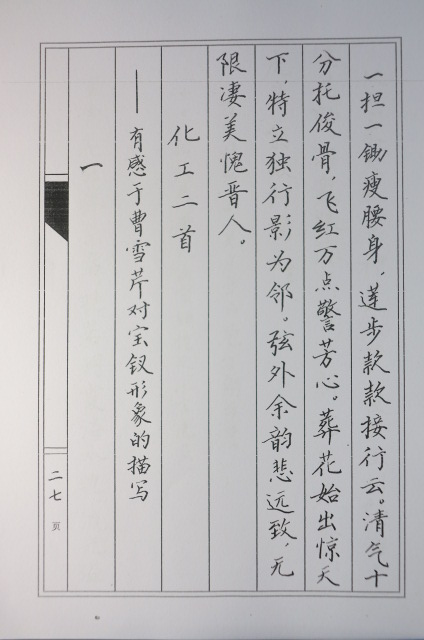 一担一锄瘦腰身，莲步款款接行云。清气十
分托俊骨，飞红万点警芳心。葬花始出惊天
下，特立独行影为邻。弦外余韵悲远致，无
限凄美愧晋人。
化工二首
——有感于曹雪芹对宝钗形象的描写
一
二七页